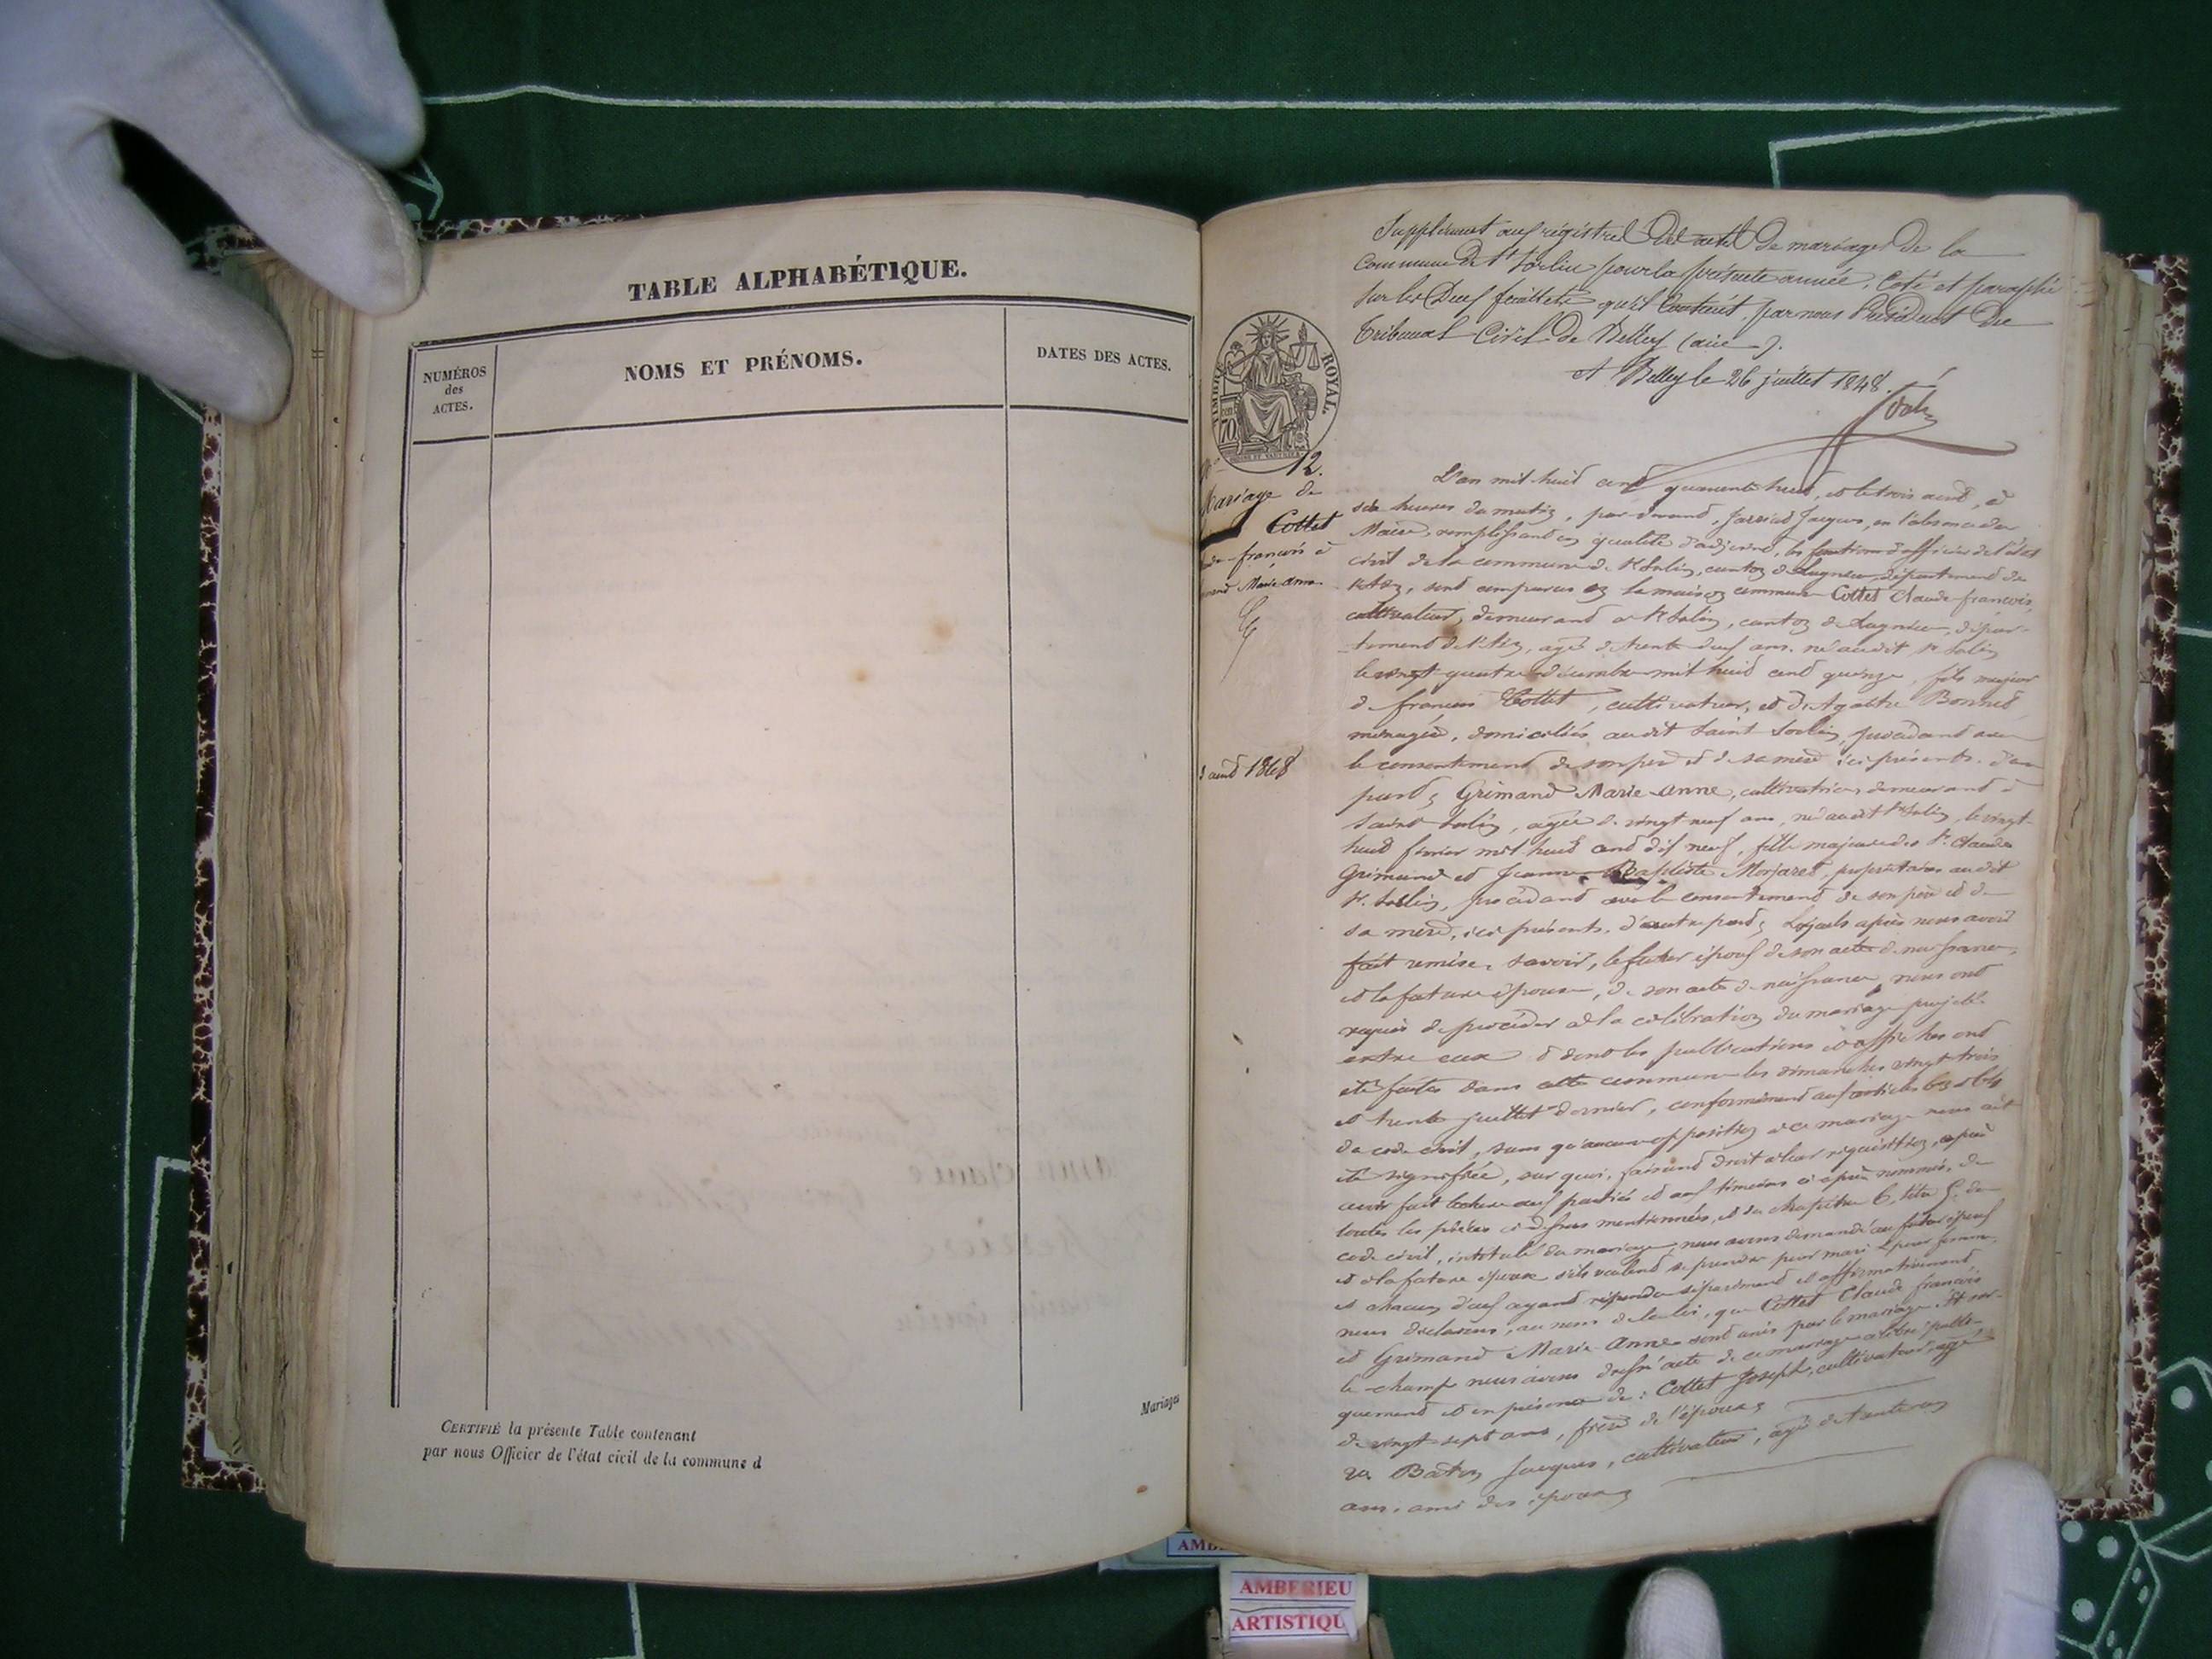 TABLE ALPHABÉTIQUE.
NUMÉROS
des
ACTES.
NOMS ET PRÉNOMS.
DATES DES ACTES.
CERTIFIÉ la présente Table contenant
par nous Officier de l'état civil de la commune d
Mariages
Supplément aux registres des actes de mariages de la
Commune de St Sorlin pour la présente année, Coté et paraphé
sur les Deux feuillets qu'il Contient, par nous Président du
Tribunal Civil de Belley (ain).
A Belley le 26 juillet 1848.
TIMBRE ROYAL.
70
12.
Mariage de
Cottet
françois à
Marie anne
3 aout 1848
L'an mil huit cent quarante huit, et le trois aout, à
six heures du matin, par devant, Jacques, en l'absence du
Maire, remplissant en qualité d'adjoint, les fonctions d'officier de l'état
civil de la commune de St Sorlin, canton de Lagnieu, département de
l'Ain, sont comparus en la maison commune Cottet Claude françois,
cultivateur, demeurant à St Sorlin, canton de Lagnieu, dépar-
-tement de l'Ain, agé de trente deux ans, né audit St Sorlin
le vingt quatre décembre mil huit cent quinze, fils majeur
de francois Cottet, cultivateur, et d'Agathe Bonnet
ménagère, domiciliés audit Saint Sorlin, procédant avec
le consentement de son père et de sa mère ici présents. d'une
part, Grimand Marie Anne, cultivatrice demeurant à
Saint Sorlin, agée de vingt neuf ans, née audit St Sorlin, le vingt
huit février mil huit cent dix neuf, fille majeure des Srs Claude
Grimand et Jeanne Baptiste Morjaret, propriétaires audit
St Sorlin, procédant avec le consentement de son père et de
sa mère, ici présents, d'autre part; Lesquels après nous avoir
fait remise, savoir, le futur époux de son acte de naissance,
et la future épouse, de son acte de naissance, nous ont
requis de procéder à la célébration du mariage projeté
entre eux et dont les publications et affiches ont
été faites dans cette commune les dimanches vingt trois
et trente juillet dernier, conformément aux articles 63 et 64
du code civil, sans qu'aucune opposition à ce mariage nous ait
été signifiée, sur quoi, faisant droit à leur réquisition, après
avoir fait lecture aux parties et aux témoins ci après nommés, de
toutes les pièces ci dessus mentionnées, et du chapitre 6, titre 5, du
code civil, intitulé du mariage, nous avons demandé au futur époux
et à la future épouse s'ils veulent se prendre pour mari et pour femme,
et chacun d'eux ayant répondu séparément et affirmativement
nous déclarons, au nom de la loi, que Cottet Claude francois
et Grimand Marie Anne sont unis par le mariage. Et sur
le champ nous avons dressé acte de ce mariage célébré publi-
quement et en présence de: Cottet Joseph, cultivateur, agé
de vingt sept ans, frère de l'époux
Jacques, cultivateur, agé de trente
ans, ami des époux
AMBERIEU
ARTISTIQU